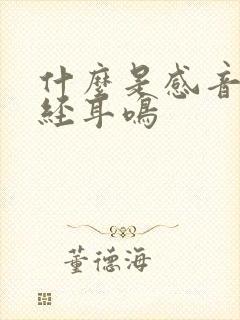 什麼是感音
經耳鳴
董德海